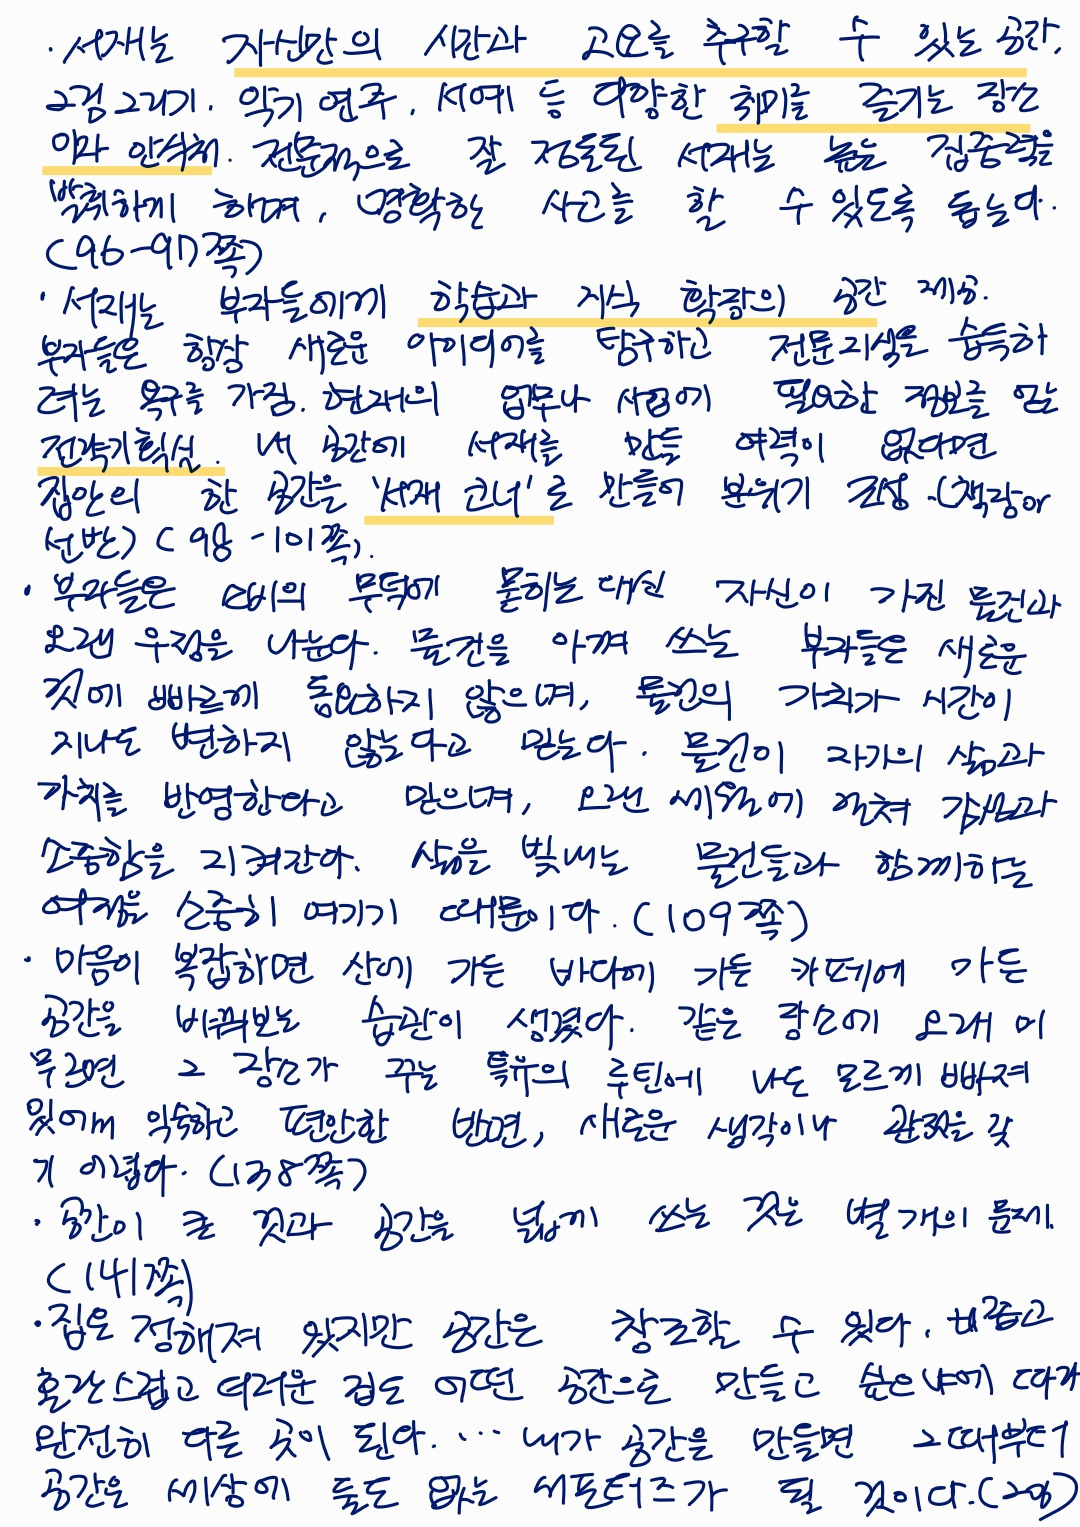 · 서재는 자신만의 시간과 고요를 추구할 수 있는 공간,
그림 그리기, 악기 연주, 서예 등 다양한 취미를 즐기는 장소
이자 안식처. 전문적으로 잘 정돈된 서재는 높은 집중력을
발휘하게 하며, 명확한 사고를 할 수 있도록 돕는다.
(96-97쪽)
· 서재는 부자들에게 학습과 지식 확장의 공간 제공.
부자들은 항상 새로운 아이디어를 탐구하고 전문지식을 습득하
려는 욕구를 가짐. 현재의 업무나 사업에 필요한 정보를 얻는
전략기획실. 내 공간에 서재를 만들 여력이 없다면
집안의 한 공간을 '서재 코너'로 만들어 분위기 조성.(책장이나
선반) (98-101쪽).
· 부자들은 소비의 무덤에 묻히는 대신 자신이 가진 물건과
오랜 우정을 나눈다. 물건을 아껴 쓰는 부자들은 새로운
것에 빠르게 동요하지 않으며, 물건의 가치가 시간이
지나도 변하지 않는다고 믿는다. 물건이 자기의 삶과
가치를 반영한다고 믿으며, 오랜 세월에 걸쳐 감성과
소중함을 지켜간다. 삶을 빛내는 물건들과 함께하는
여정을 소중히 여기기 때문이다. (109쪽)
· 마음이 복잡하면 산에 가든 바다에 가든 카페에 가든
공간을 바꿔보는 습관이 생겼다. 같은 장소에 오래 머
무르면 그 장소가 주는 특유의 루틴에 나도 모르게 빠져
있어서 익숙하고 편안한 반면, 새로운 생각이나 관점을 갖
기 어렵다. (138쪽)
· 공간이 큰 것과 공간을 넓게 쓰는 것은 별개의 문제.
(141쪽)
· 집은 정해져 있지만 공간은 창조할 수 있다. 비좁고
혼란스럽고 어려운 집도 어떤 공간으로 만들고 싶으냐에 따라
완전히 다른 곳이 된다. ··· 내가 공간을 만들면 그때부터
공간은 세상에 둘도 없는 서포터즈가 될 것이다.